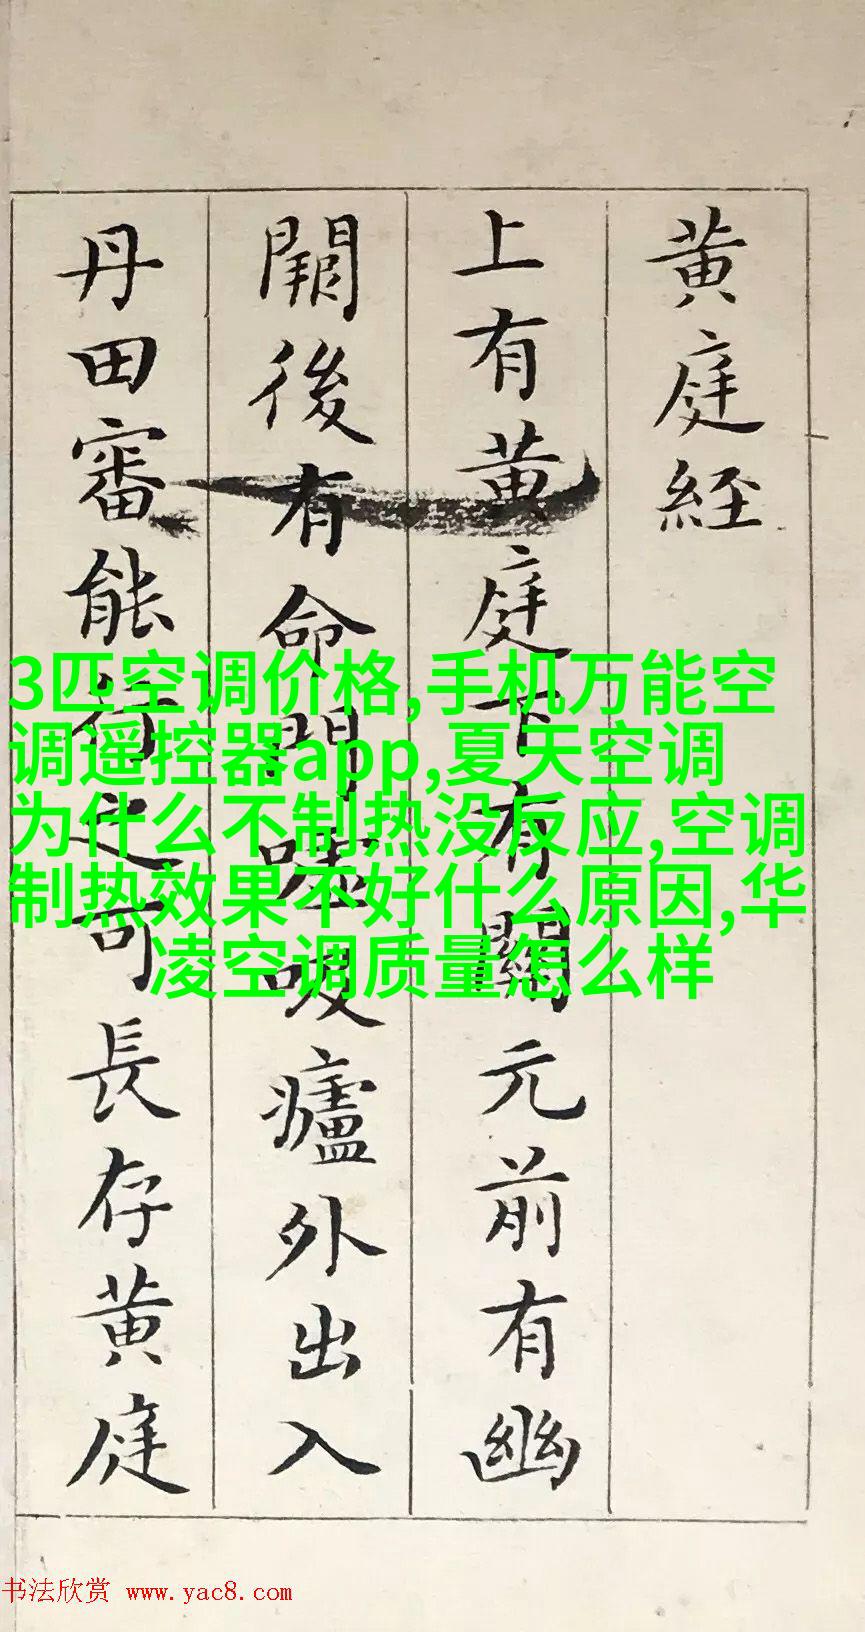 黄庭經
上有黄庭下有關元前有幽
闕後有命門噓吸廬外出入
丹田審能行之可長存黄庭
3匹空调价格,手机万能空
调遥控器app,夏天空调
为什么不制热没反应,空调
制热效果不好什么原因,华
凌空调质量怎么样
书法欣赏 www.yac8.com